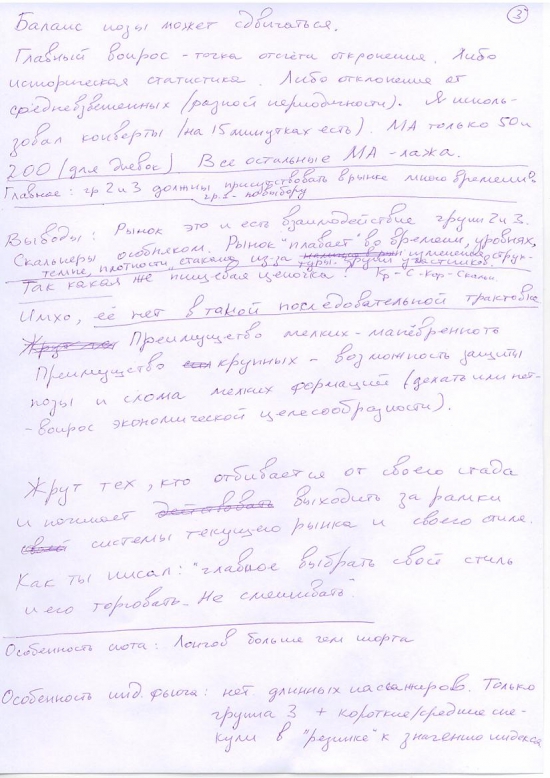 3
Баланс позы может сдвигаться.
Главный вопрос - точка отсчёта отклонения. Либо
историческая статистика. Либо отклонение от
средневзвешенных (разной периодичности). Я исполь-
зовал конверты (на 15 минутках есть). МА только 50 и
200 (для дневок) Все остальные МА - лажа.
Главное: гр 2 и 3 должны присутствовать в рынке много времени.
гр. 3 - по выбору
Выводы: Рынок это и есть взаимодействие групп 2 и 3.
Скальперы особняком. Рынок "плавает" во времени, уровнях,
темпе, плотности стакана из-за изменения струк-
туры групп участников.
Так какая же пищевая цепочка? Кр - С - Кор - Скальп.
Имхо, её нет в такой последовательной трактовке
Преимущество мелких - манёвренность
Преимущество крупных - возможность защиты
позы и слома мелких формаций (делать или нет-
- вопрос экономической целесообразности).
Жрут тех, кто отбивается от своего стада
и начинает действовать выходить за рамки
свой системы текущего рынка и своего стиля.
Как ты писал: "главное выбрать свой стиль
и его торговать. Не смешивать"
Особенность спота: Лонгов больше чем шорта
Особенность инд. фьюча: нет. длинных пассажиров. Только
группа 3 + короткие/средние спе-
кули в "резинке" к значению индекса